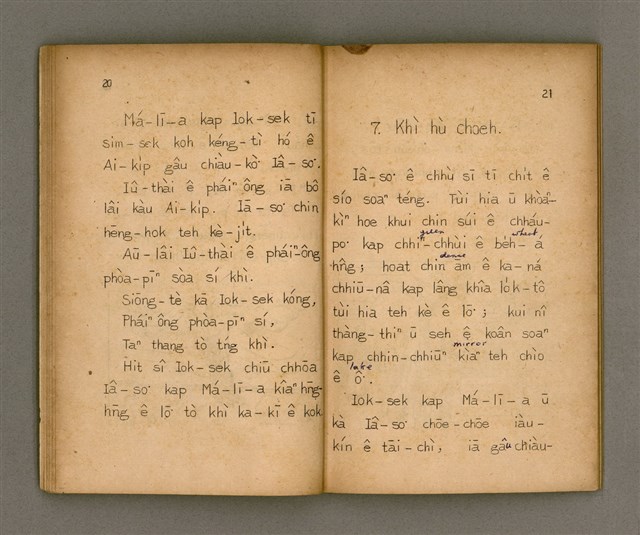 20
Má-lī-a kap Iok-sek tī
sim-sek koh kéng-tì hó ê
Ai-ki̍p gâu chiàu-kò͘ Iâ-so͘.
Iû-thài ê pháiⁿ ông iā bô
lâi kàu Ai-ki̍p. Iā-so͘ chin
hēng-hok teh kè-ji̍t.
Aū-lâi Iû-thài ê pháiⁿ-ông
phòa-pīⁿ sòa sí khì.
Siōng-tè kā Iok-sek kóng,
Pháiⁿ ông phòa-pīⁿ sí,
Taⁿ thang tò tńg khì.
Hit sî Iok-sek chiū chhōa
Iâ-so͘ kap Má-lī-a kîaⁿ hn̄g-
hn̄g ê lō͘ tò khì ka-kī ê kok
21
7. Khì hù choeh.
Iâ-so͘ ê chhù sī tī chi̍t ê
sío soaⁿ téng. Tùi hia ū khòaⁿ-
kìⁿ hoe khui chin súi ê chháu-
green wheat,
po͘ kap chhiⁿ-chhùi ê be̍h-á
dense
hn̂g; hoat chin ām ê ka-ná
chhiū-nâ kap lâng khîa lo̍k-tô
tùi hia teh kè ê lō͘; kui nî
thàng-thiⁿ ū seh ê koân soaⁿ
mirror
kap chhin-chhiūⁿ kìaⁿ teh chìo
lake
ê ô͘.
Iok-sek kap Má-lī-a ū
kà Iâ-so͘ chōe-chōe iàu-
kín ê tāi-chì, iā gâu chiàu-